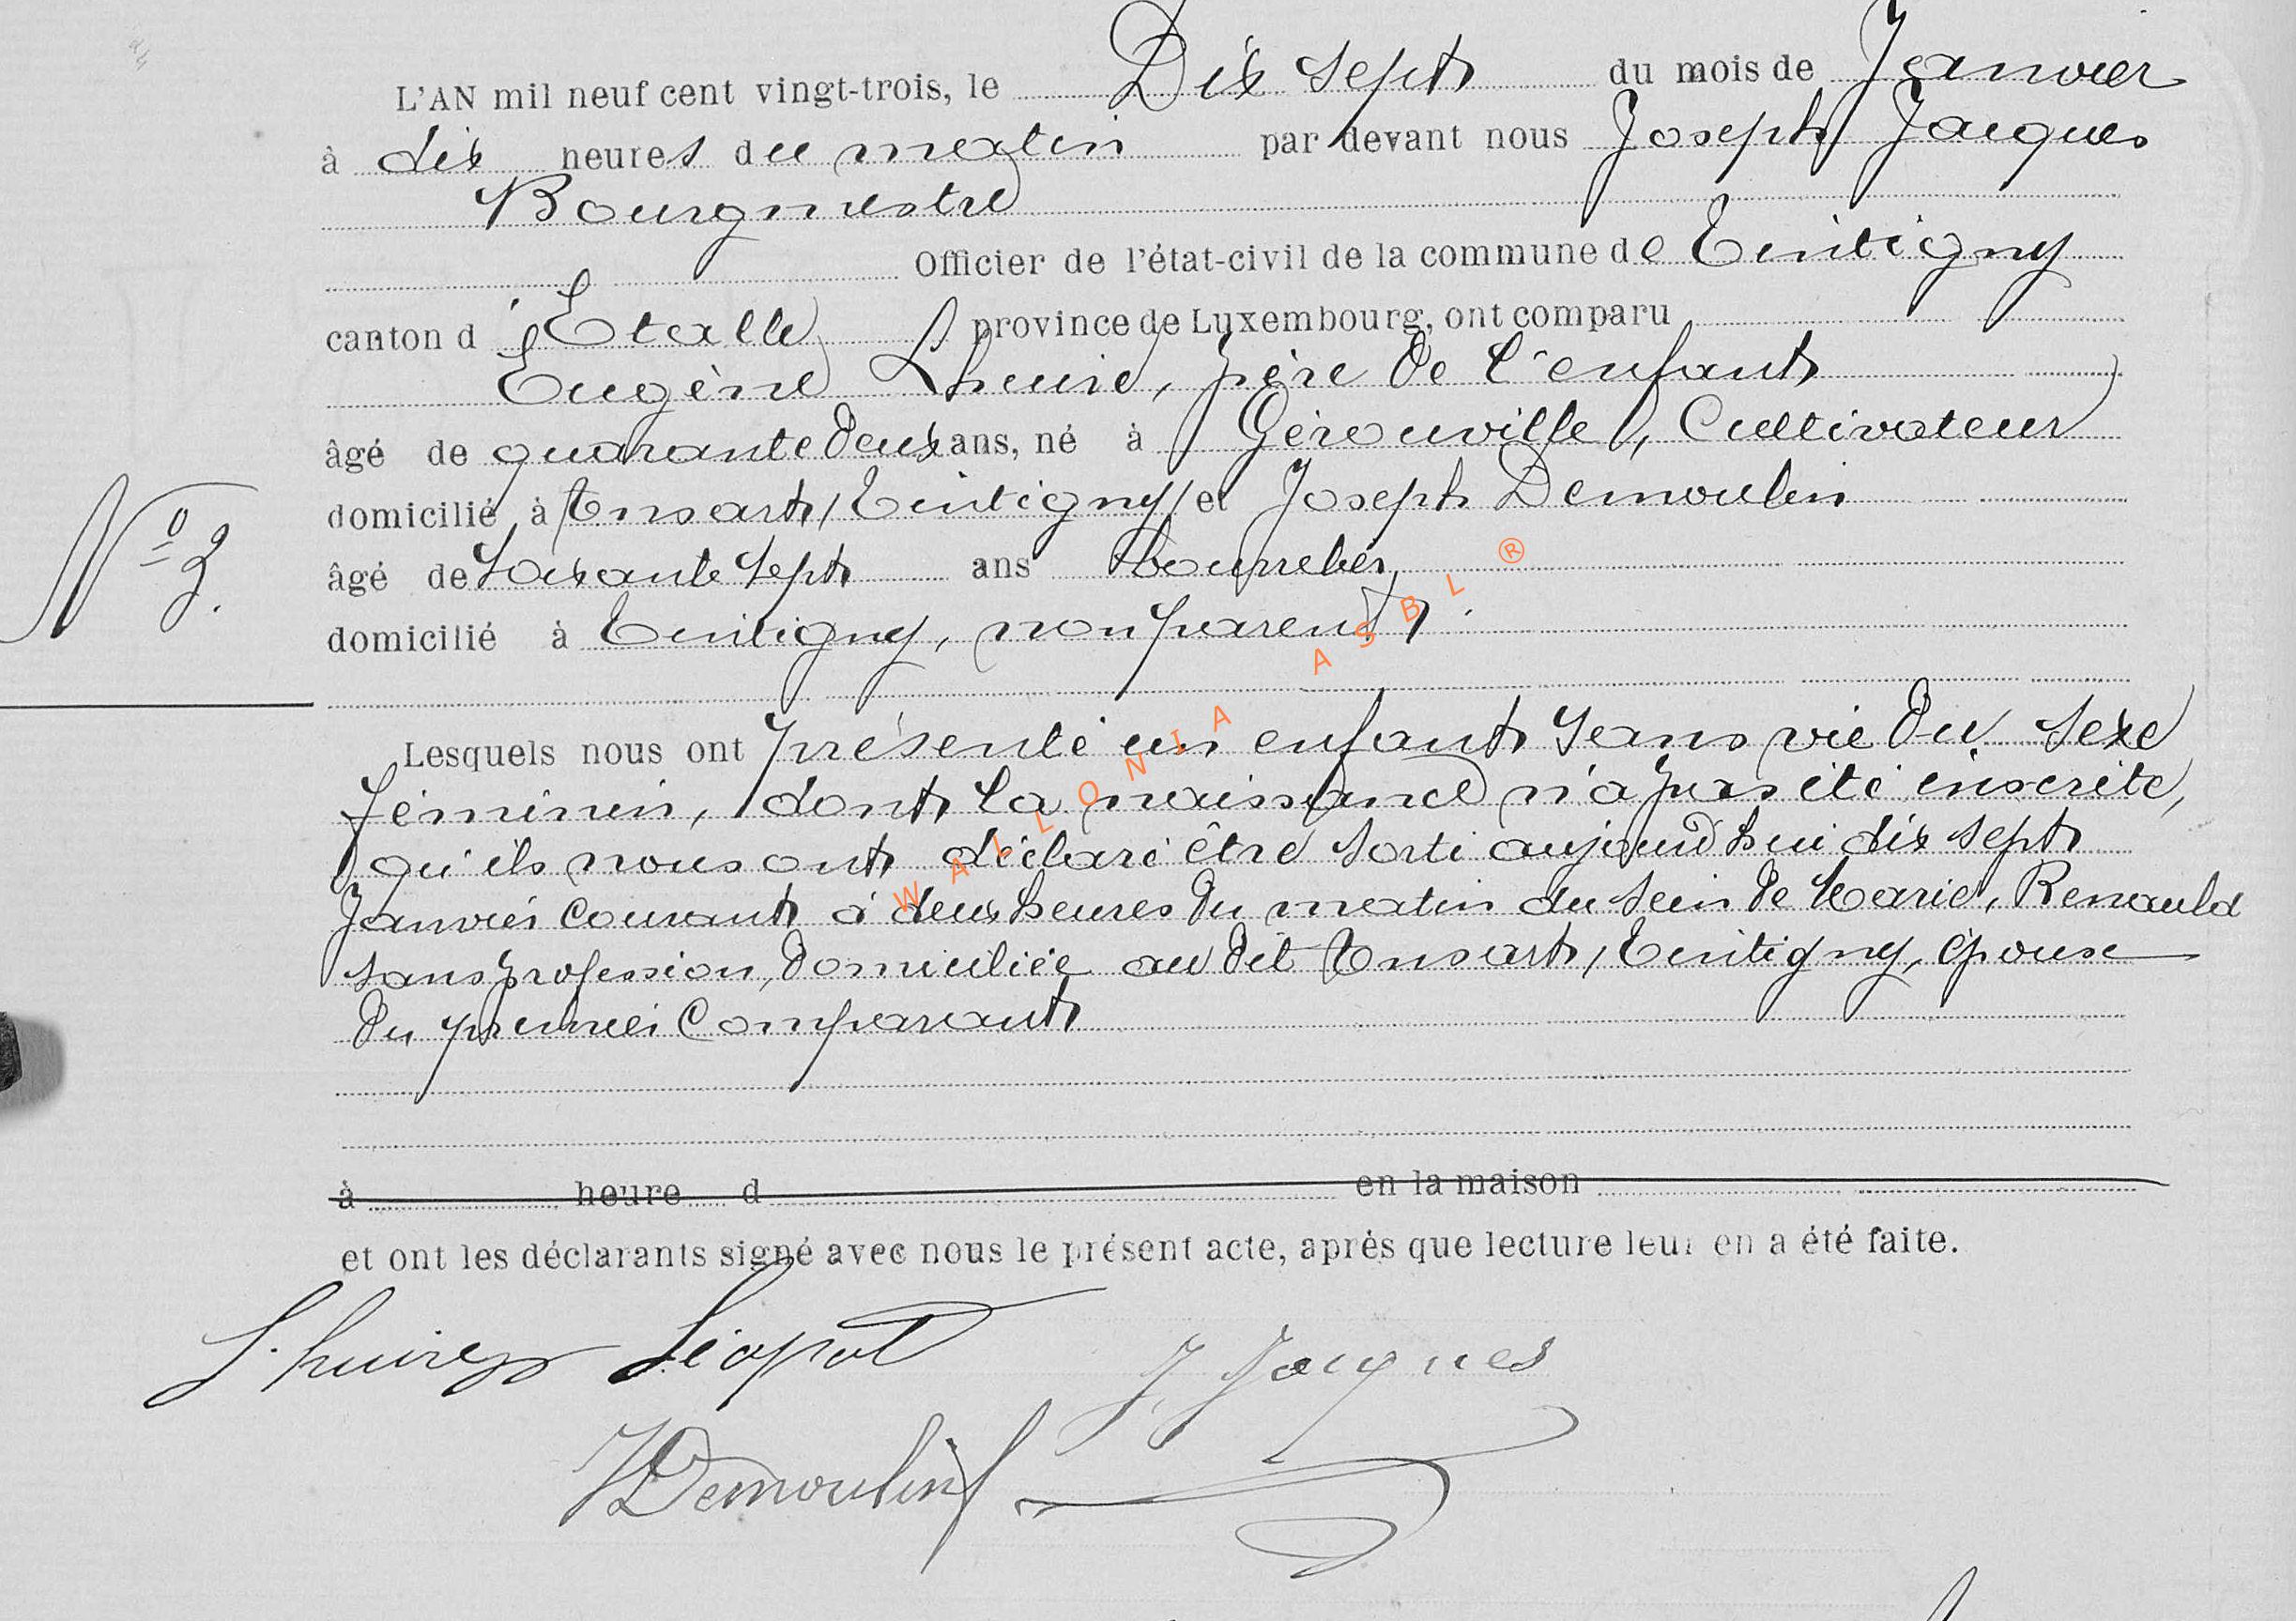 L'AN mil neuf cent vingt-trois, le Dix sept du mois de Janvier
à dix heures du matin par devant nous Joseph Jacques
Bourgmestre
Officier de l'état-civil de la commune de Tintigny
canton d'Etalle province de Luxembourg, ont comparu
Eugène Lhuire, père de l'enfant
âgé de quarante deux ans, né à Gérouville, Cultivateur
domicilié à Ansart, Tintigny, et Joseph Demoulin
N° 3.
âgé de Soixante sept ans bourrelier,
domicilié à Tintigny, non parent.
Lesquels nous ont présenté un enfant sans vie du sexe
féminin, dont la naissance n'a pas été inscrite,
qu'ils nous ont déclaré être sorti aujourd'hui dix sept
Janvier courant à deux heures du matin du sein de Marie, Renauld
sans profession, domiciliée au dit Ansart, Tintigny, épouse
du premier Comparant
à heure d en la maison
et ont les déclarants signé avec nous le présent acte, après que lecture leur en a été faite.
Lhuire Léopol J. Jacques
J Demoulin
WALLONIA ASBL ®